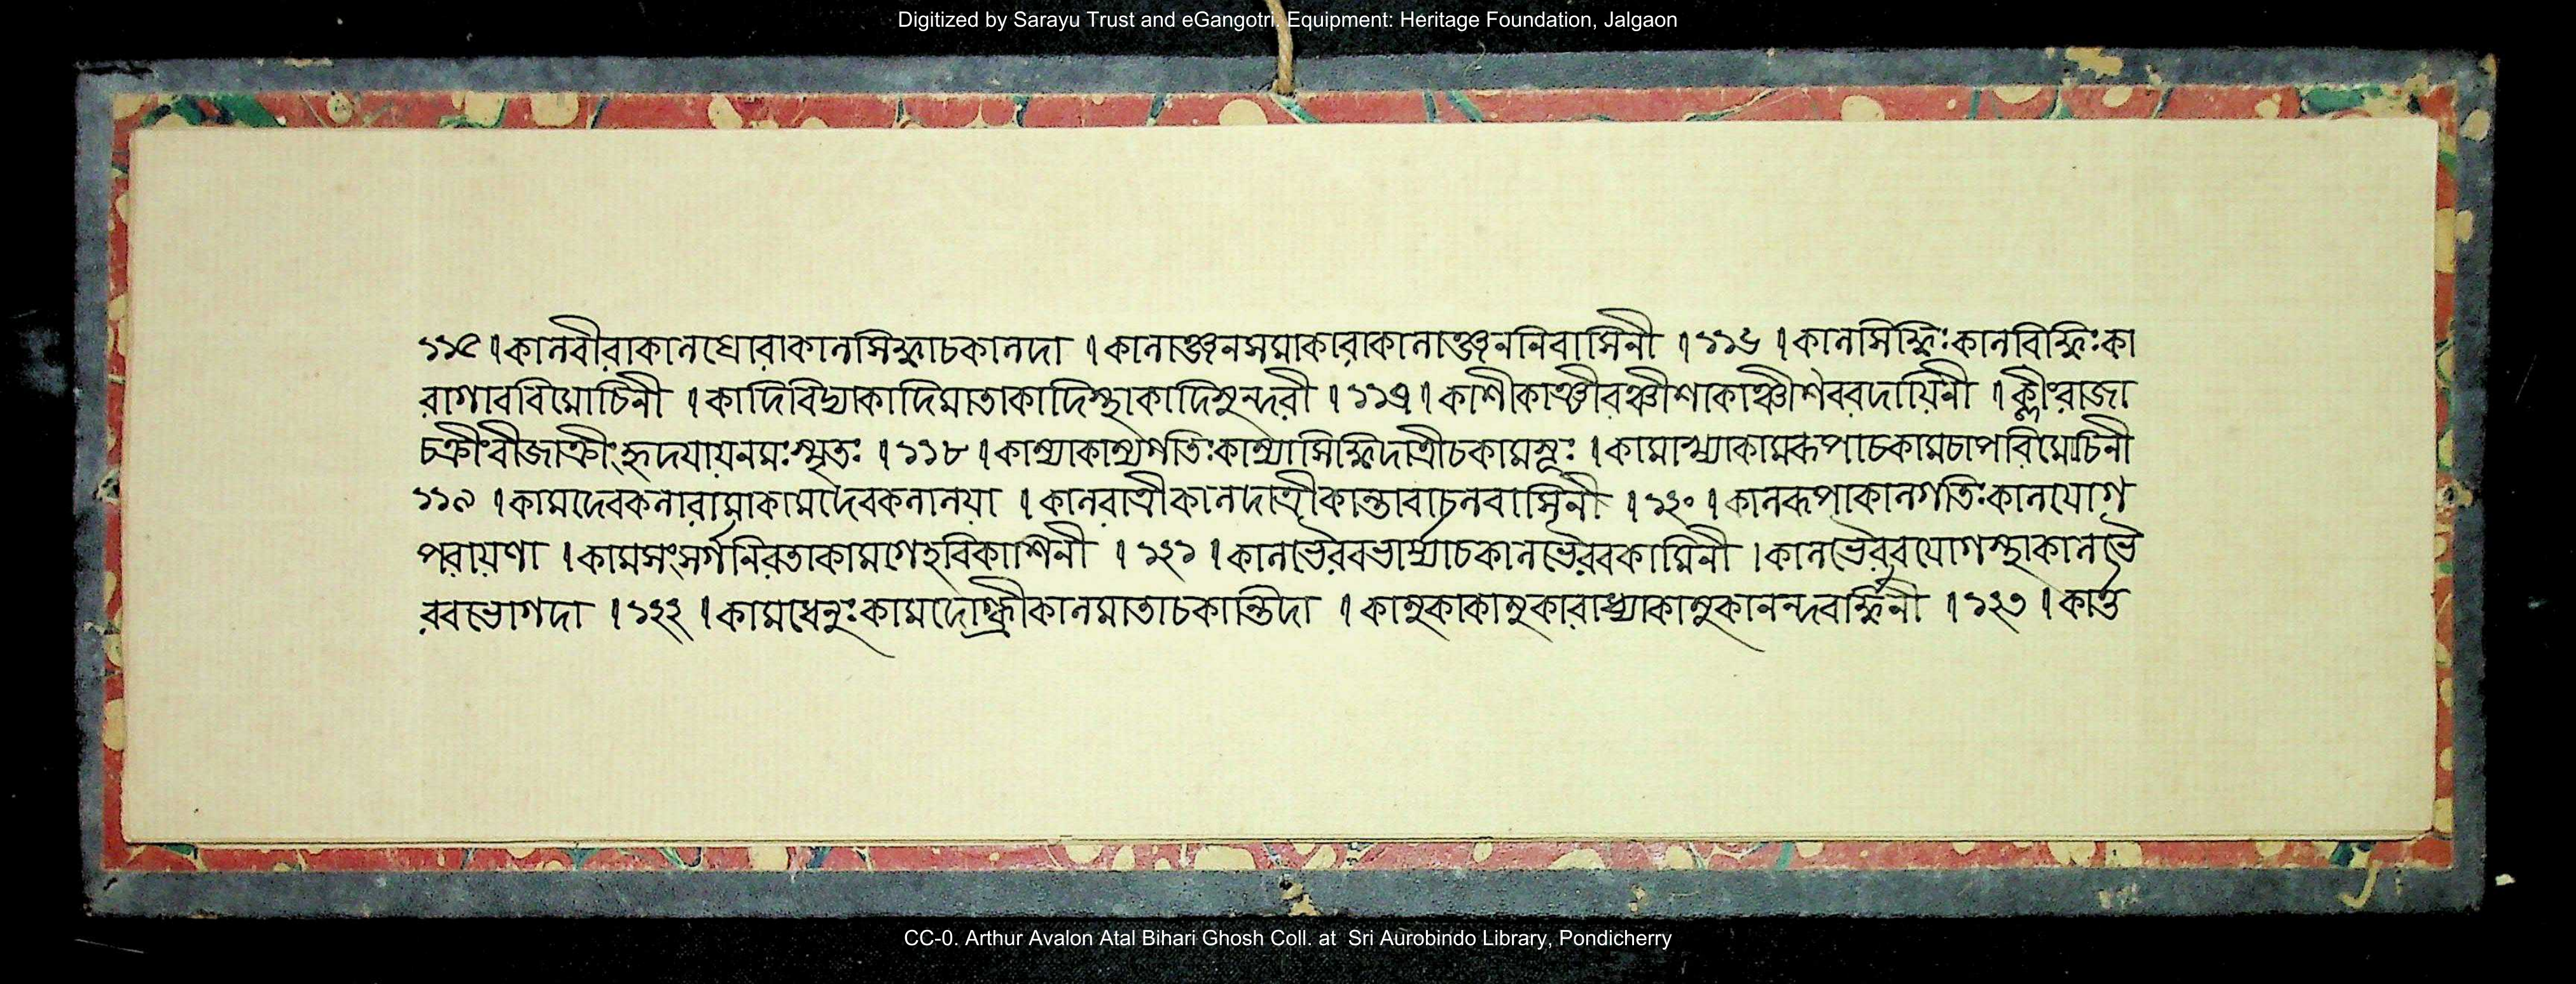 Digitized by Sarayu Trust and eGangotri. Equipment: Heritage Foundation, Jalgaon
১১৫ । কালবীরাকালঘোরাকালসিদ্ধাচকালদা । কালাঞ্জনসমাকারাকালাঞ্জরনিবাসিনী । ১১৬ । কালসিদ্ধিঃকালবিদ্ধিঃকা
রাগাববিমোচিনী । কাদিবিদ্যাকাদিমাতাকাদিস্থাকাদিসুন্দরী । ১১৭ । কাশীকাঞ্চীবঞ্চীশাকাঞ্চীশৈববদায়িনী । ক্লীংরাজা
চক্রীংবীজাক্রীংহৃদয়ায়নমঃস্মৃতঃ । ১১৮ । কাম্যাকাম্যগতিঃকাম্যাসিদ্ধিদাত্রীচকামসূঃ । কামাখ্যাকামরূপাচকামচাপবিমোচিনী
১১৯ । কামদেবকলারামাকামদেবকলালয়া । কালরাত্রীকালদাত্রীকান্তাবাচলবাসিনী । ১২০ । কালরূপাকালগতিঃকালযোগ
পরায়ণা । কামসংসর্গনিরতাকামগেহবিকাশিনী । ১২১ । কালভৈরবভার্য্যাচকালভৈরবকামিনী । কালভৈরবযোগস্থাকালভৈ
রবভোগদা । ১২২ । কামধেনুঃকামদোগ্ধ্রীকালমাতাচকান্তিদা । কামুকাকামুকারাধ্যাকামুকানন্দবর্দ্ধিনী । ১২৩ । কার্ত্ত
CC-0. Arthur Avalon Atal Bihari Ghosh Coll. at Sri Aurobindo Library, Pondicherry